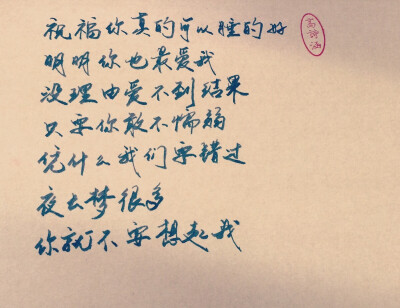 祝福你真的可以睡的好
明明你也最爱我
没理由爱不到结果
只要你敢不懦弱
凭什么我们要错过
夜长梦很多
你就不要想起我